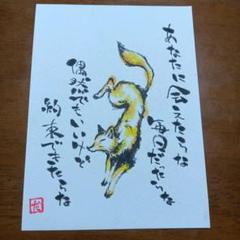 あなたに会えたらな
毎日だったらな
偶然でもいいけど
約束できたらな